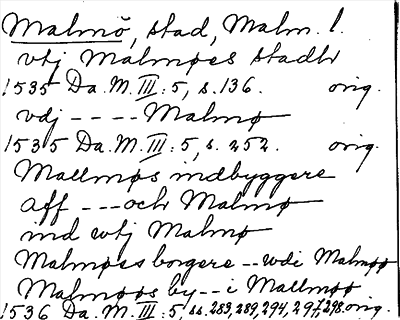 Malmö, stad, Malm. l.
vtj Malmøes stadh
1535 Da. M. III: 5, s. 136. orig.
vdj ---- Malmø
1535 Da. M. III: 5, s. 252. orig.
Mallmøs indbyggere
aff --- och Malmø
ind vtj Malmø
Malmøes borgere -- wdi Malmøø
Malmøøs by -- i Mallmøø
1536 Da. M. III: 5, ss. 283, 289, 294, 297, 298. orig.